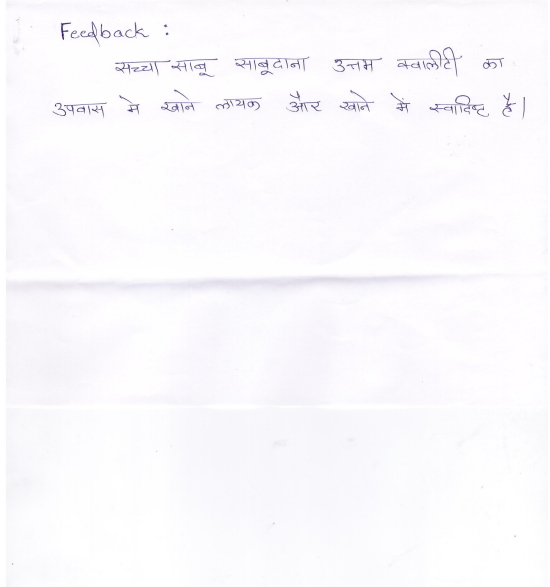 Feedback :
सच्चा साबू साबूदाना उत्तम क्वालीटी का
उपवास मे खाने लायक और खाने में स्वादिष्ट है।